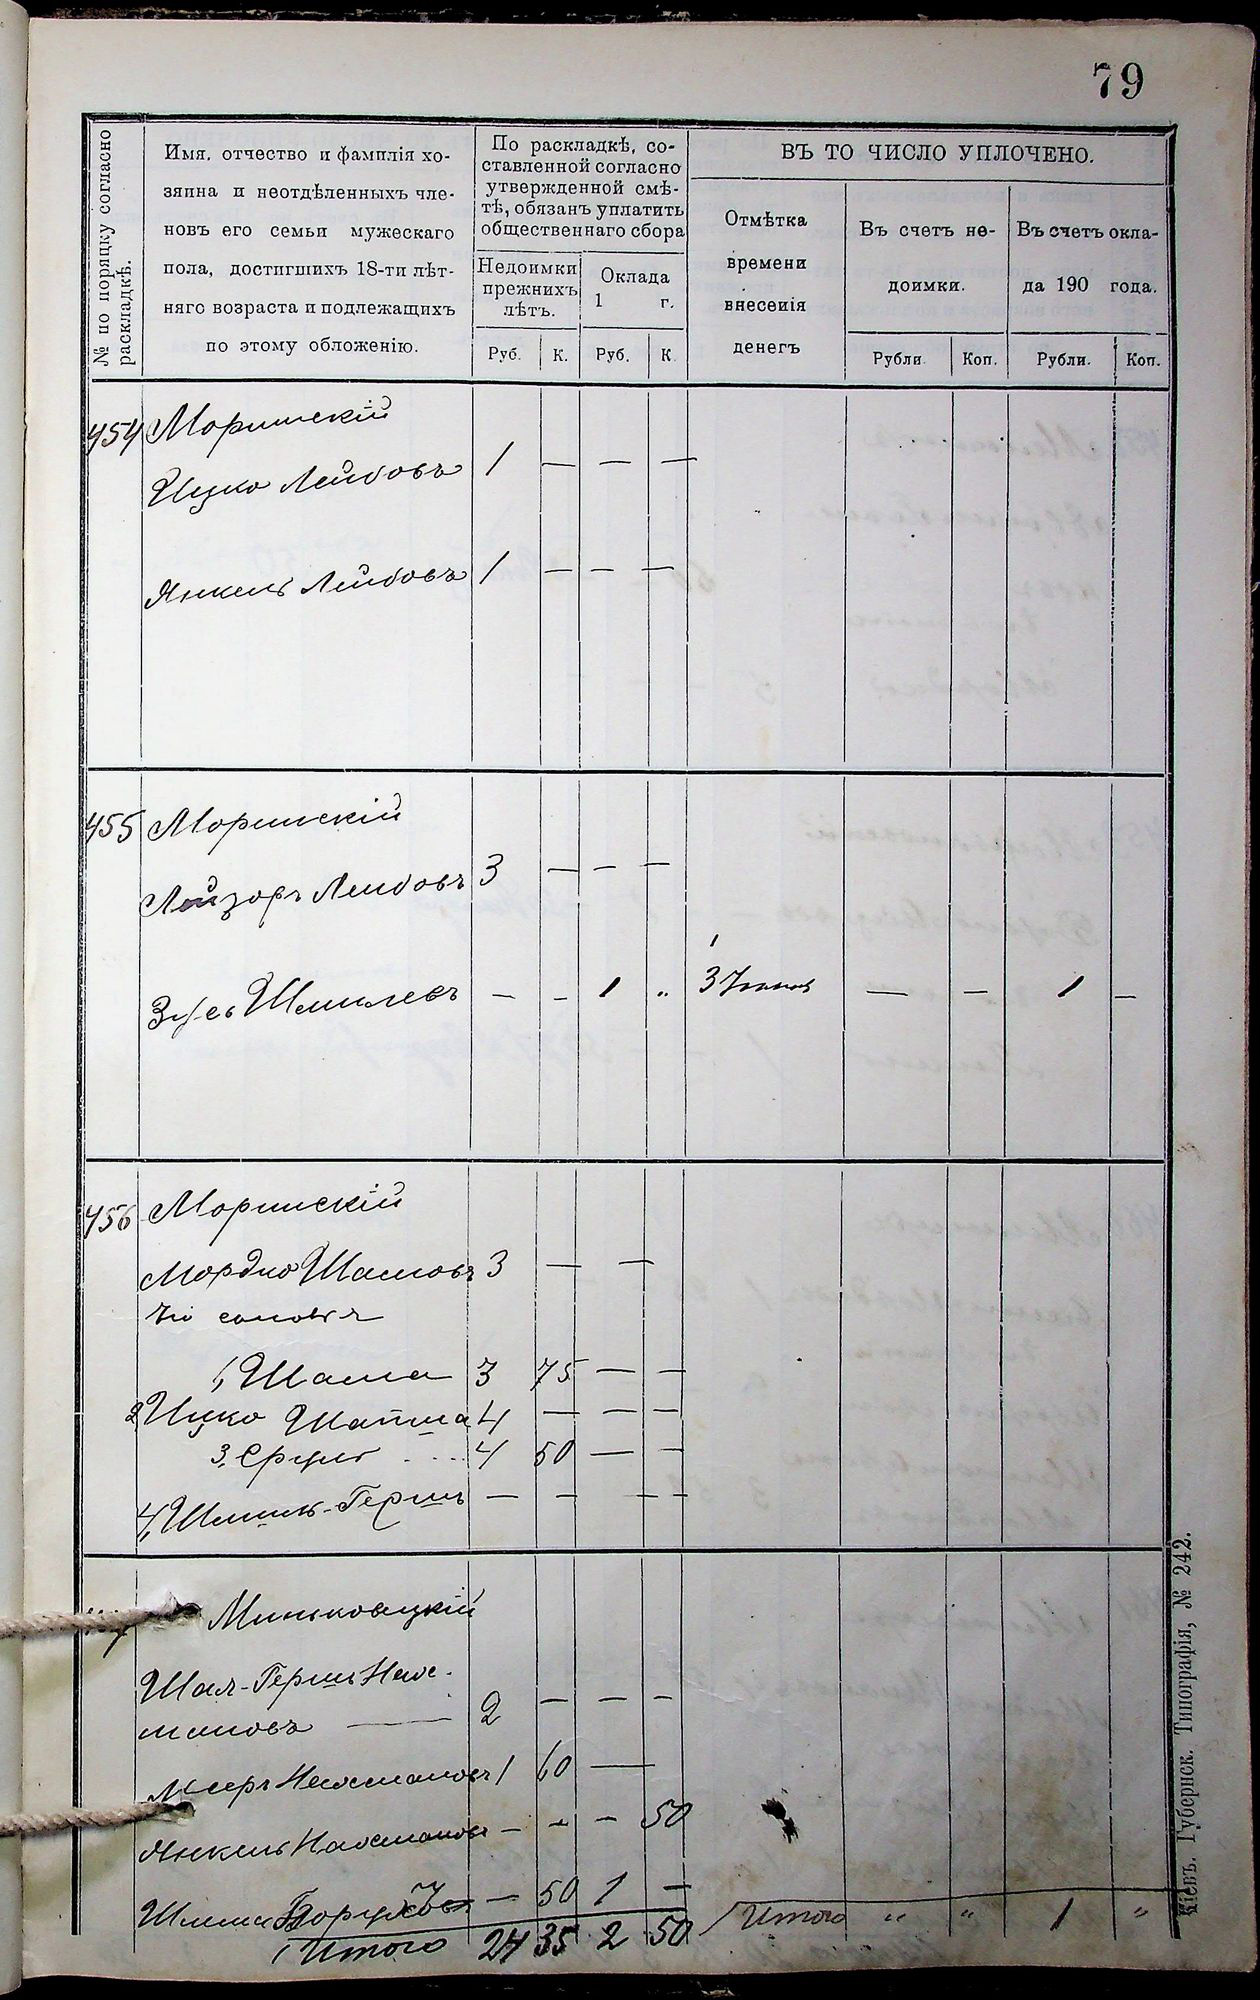 79
№ по поряцку согласно раскладкѣ.
Имя, отчество и фамилія хо-
зяина и неотдѣленныхъ чле-
новъ его семьи мужескаго
пола, достигшихъ 18-ти лѣт-
няго возраста и подлежащихъ
по этому обложенію.
По раскладкѣ, со-
ставленной согласно
утвержденной смѣ-
тѣ, обязанъ уплатить
общественнаго сбора
Недоимки
прежнихъ
лѣтъ.
Оклада
1 г.
Руб. К. Руб. К
ВЪ ТО ЧИСЛО УПЛОЧЕНО.
Отмѣтка
времени
внесенія
денегъ
Въ счетъ не-
доимки.
Рубли Коп.
Въ счетъ окла-
да 190 года.
Рубли. Коп.
454 Моринскій
Ицко Лейбовъ 1 — — —
Янкель Лейбовъ 1 — — —
455 Моринскій
Лейзоръ Лейбовъ 3 — — —
Зусь Шмилевъ — — 1 „ — — 1 —
456 Моринскій
Мордко Шамовъ 3 — —
его сыновья
1, Шама 3 75 — —
2, Ицко Шапша 4 — — —
3, Сруль 4 50 — —
4, Шмиль-Гершъ — — — —
Миньковецкій
Шая-Герш Нах-
мановъ — 2 — — —
Мееръ Нахмановъ 1 60 —
Янкель Нахмановъ — — — 50
Шлема Боруховъ — 50 1 —
Итого 24 35 2 50 Итого „ „ 1 „
Кіевъ. Губернск. Типографія, № 242.